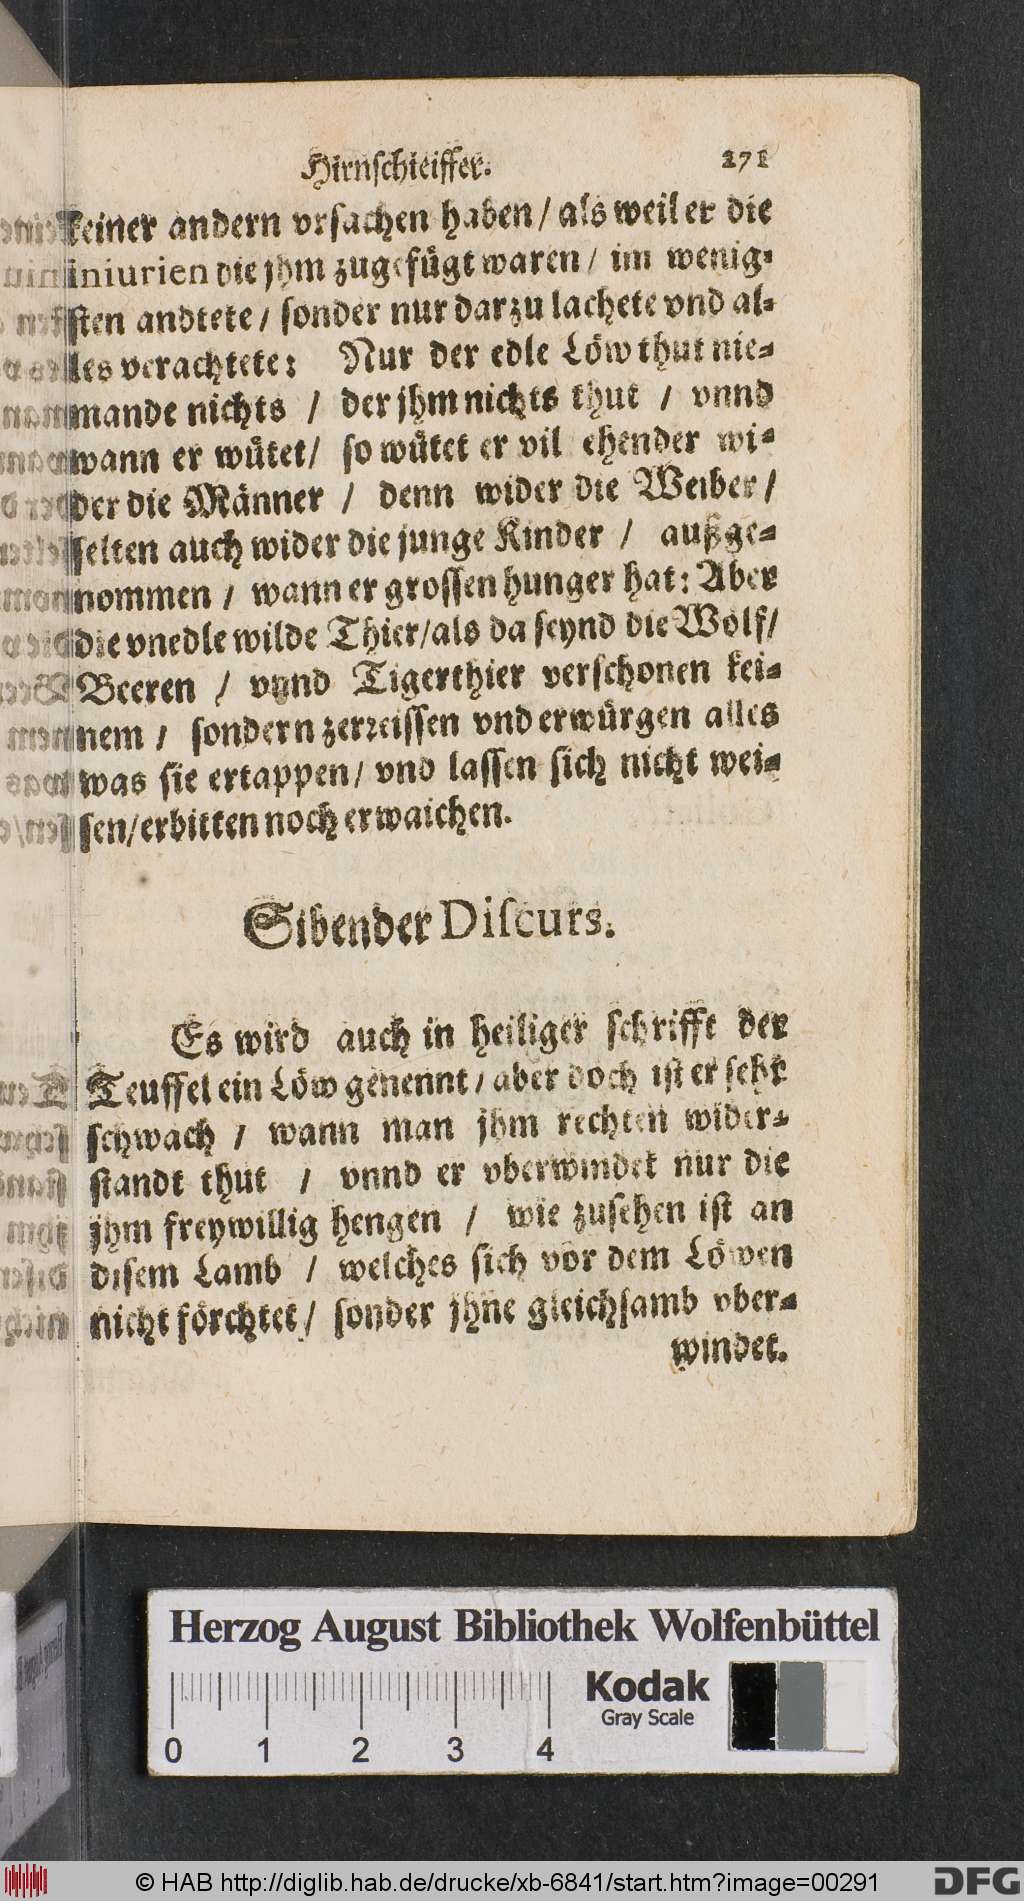 Hirnschleiffer. 271
keiner andern vrsachen haben / als weil er die
iniurien die jhm zugefügt waren / im wenig-
sten andtete / sonder nur darzu lachete vnd al-
les verachtete: Nur der edle Löw thut nie-
mandt nichts / der jhm nichts thut / vnnd
wann er wütet / so wütet er vil ehender wi-
der die Männer / denn wider die Weiber /
selten auch wider die junge Kinder / außge-
nommen / wann er grossen hunger hat: Aber
die vnedle wilde Thier / als da seynd die Wölf /
Beeren / vnnd Tigerthier verschonen kei-
nem / sondern zerreissen vnd erwürgen alles
was sie ertappen / vnd lassen sich nicht wei-
sen / erbitten noch erwaichen.
Sibender Discurs.
Es wird auch in heiliger schrifft der
Teuffel ein Löw genennt / aber doch ist er sehr
schwach / wann man jhm rechten wider-
standt thut / vnnd er vberwindet nur die
jhm freywillig hengen / wie zusehen ist an
disem Lamb / welches sich vor dem Löwen
nicht förchtet / sonder jhne gleichsamb vber-
windet.
Herzog August Bibliothek Wolfenbüttel
Kodak
Gray Scale
0 1 2 3 4
© HAB http://diglib.hab.de/drucke/xb-6841/start.htm?image=00291
DFG